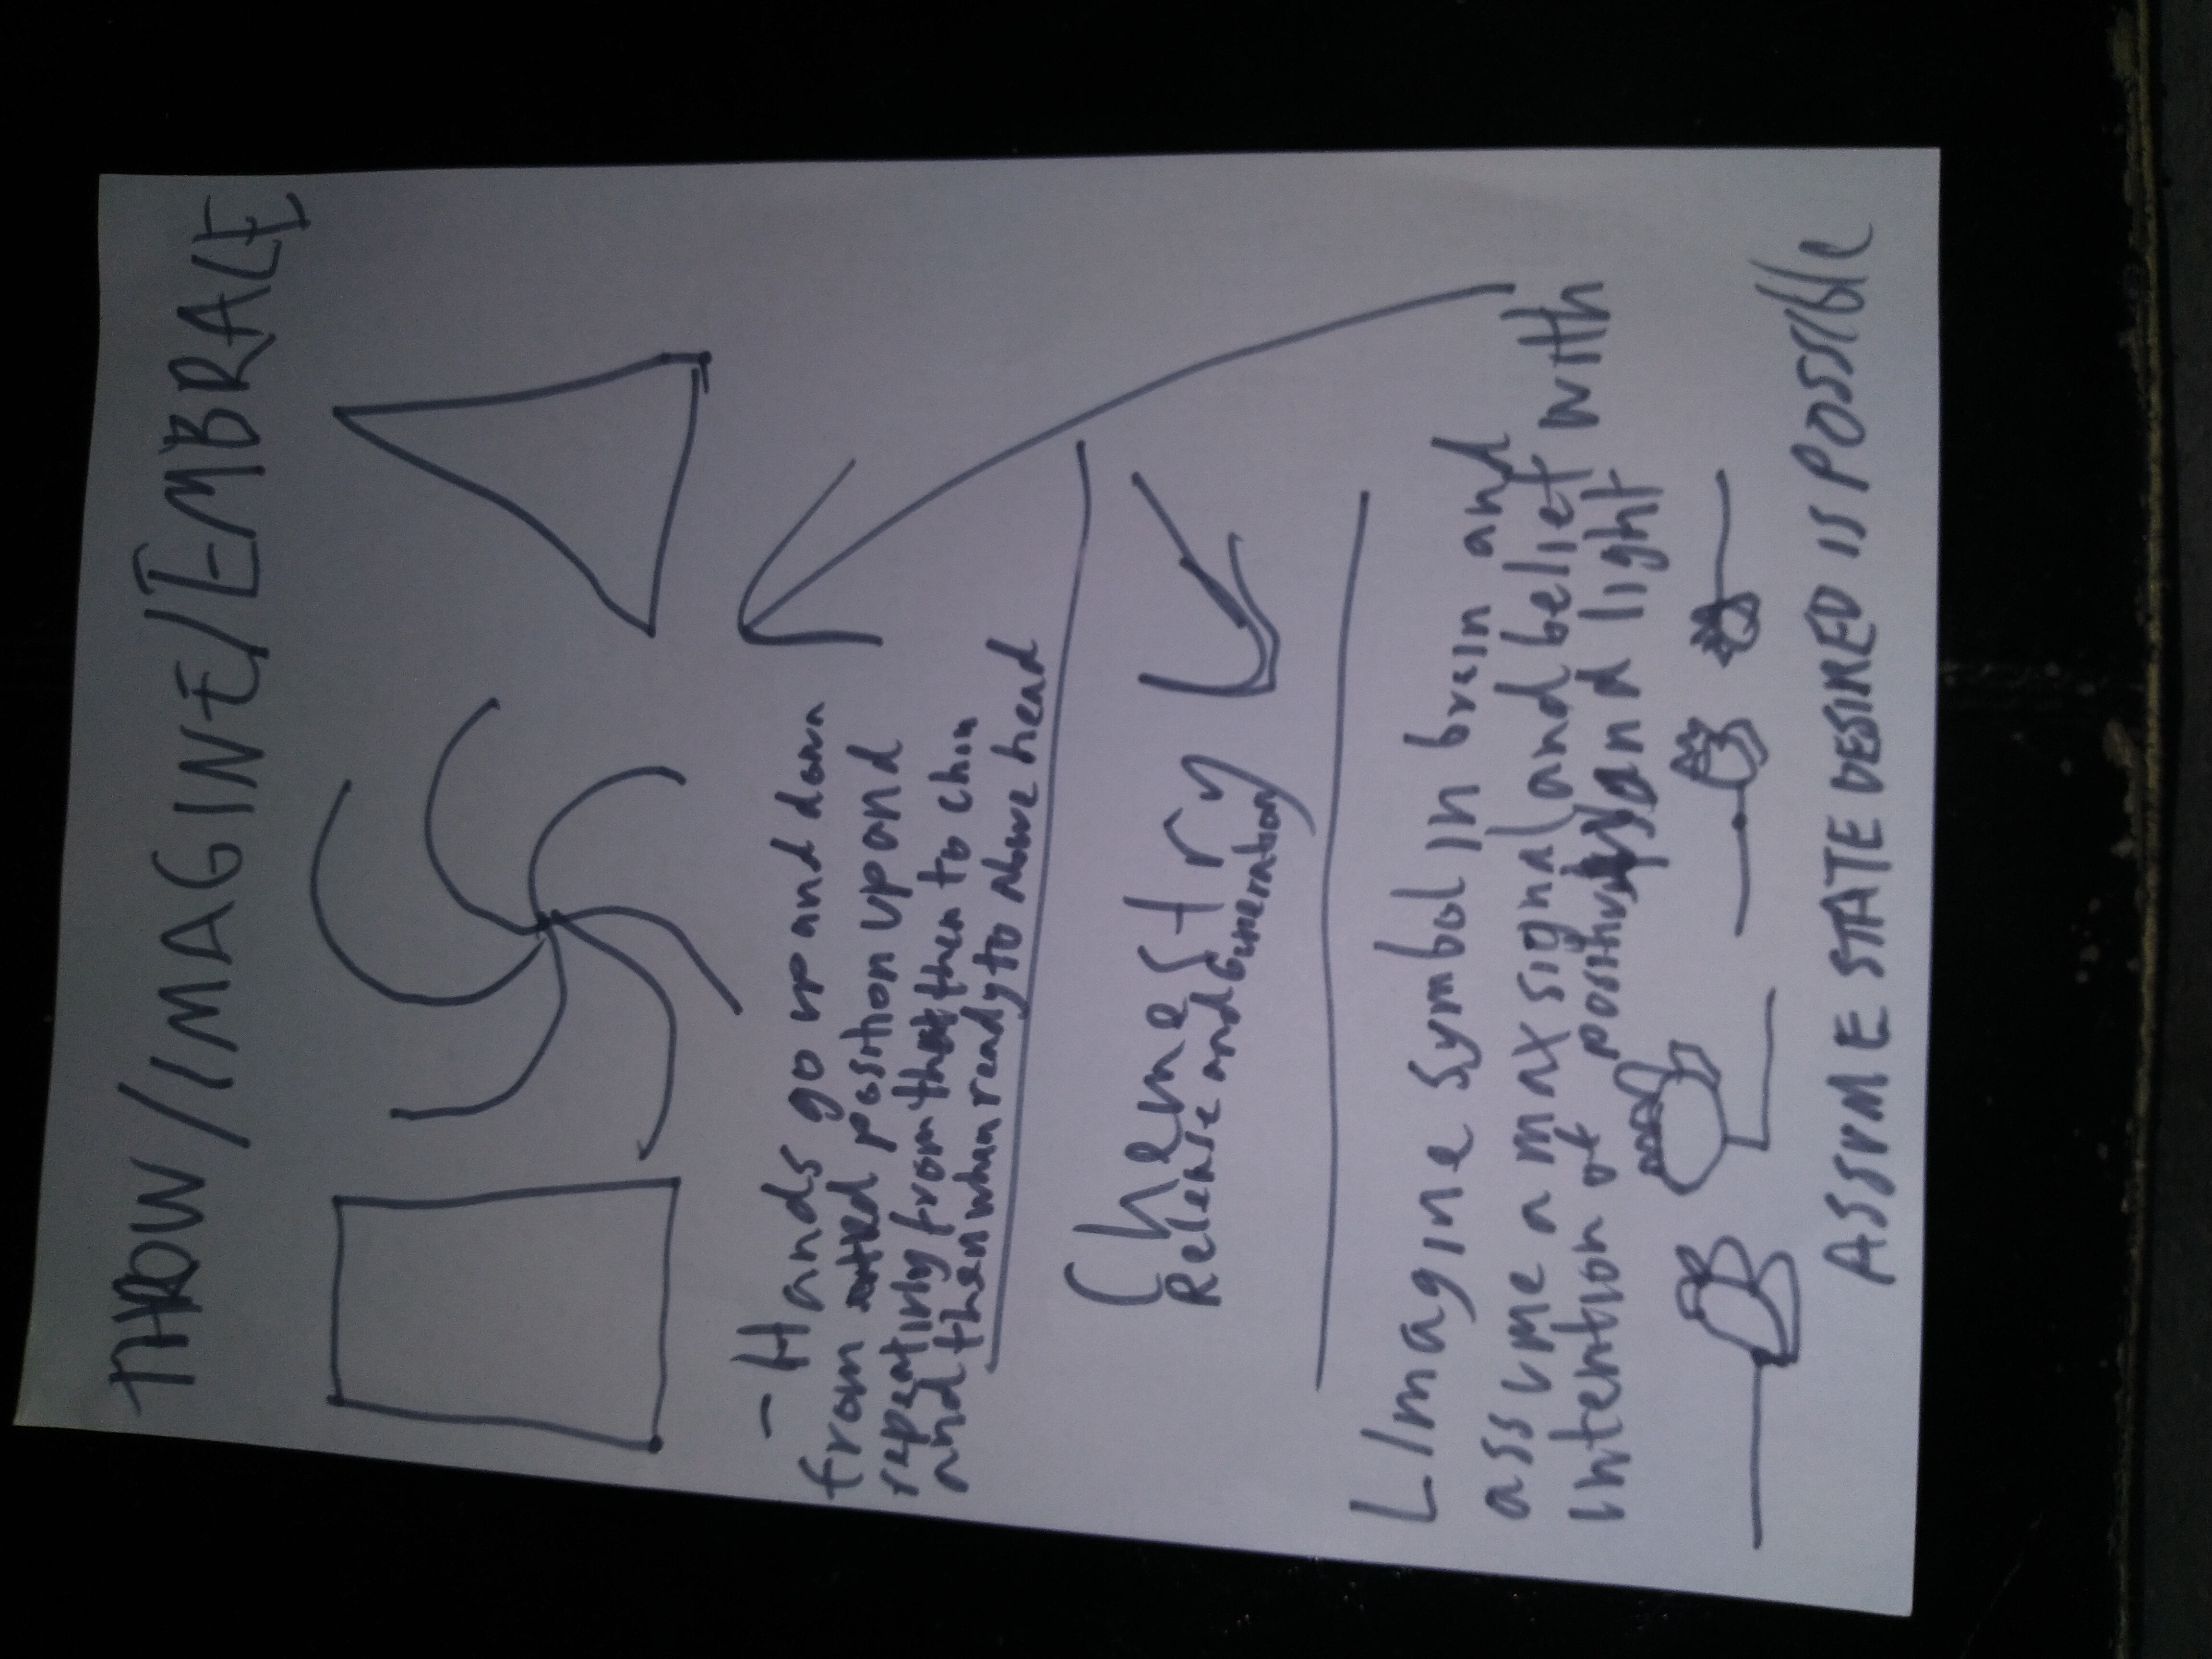 THROW/IMAGINE/EMBRACE
- Hands go up and down
from rested position up and
repeatinly from that then to chin
and then whan ready to above head
Chemestry
Release and Generation
Imagine symbol in brain and
assume a max signal and belief with
intention of positivity and light
ASSUME STATE DESIRED IS POSSIBLE